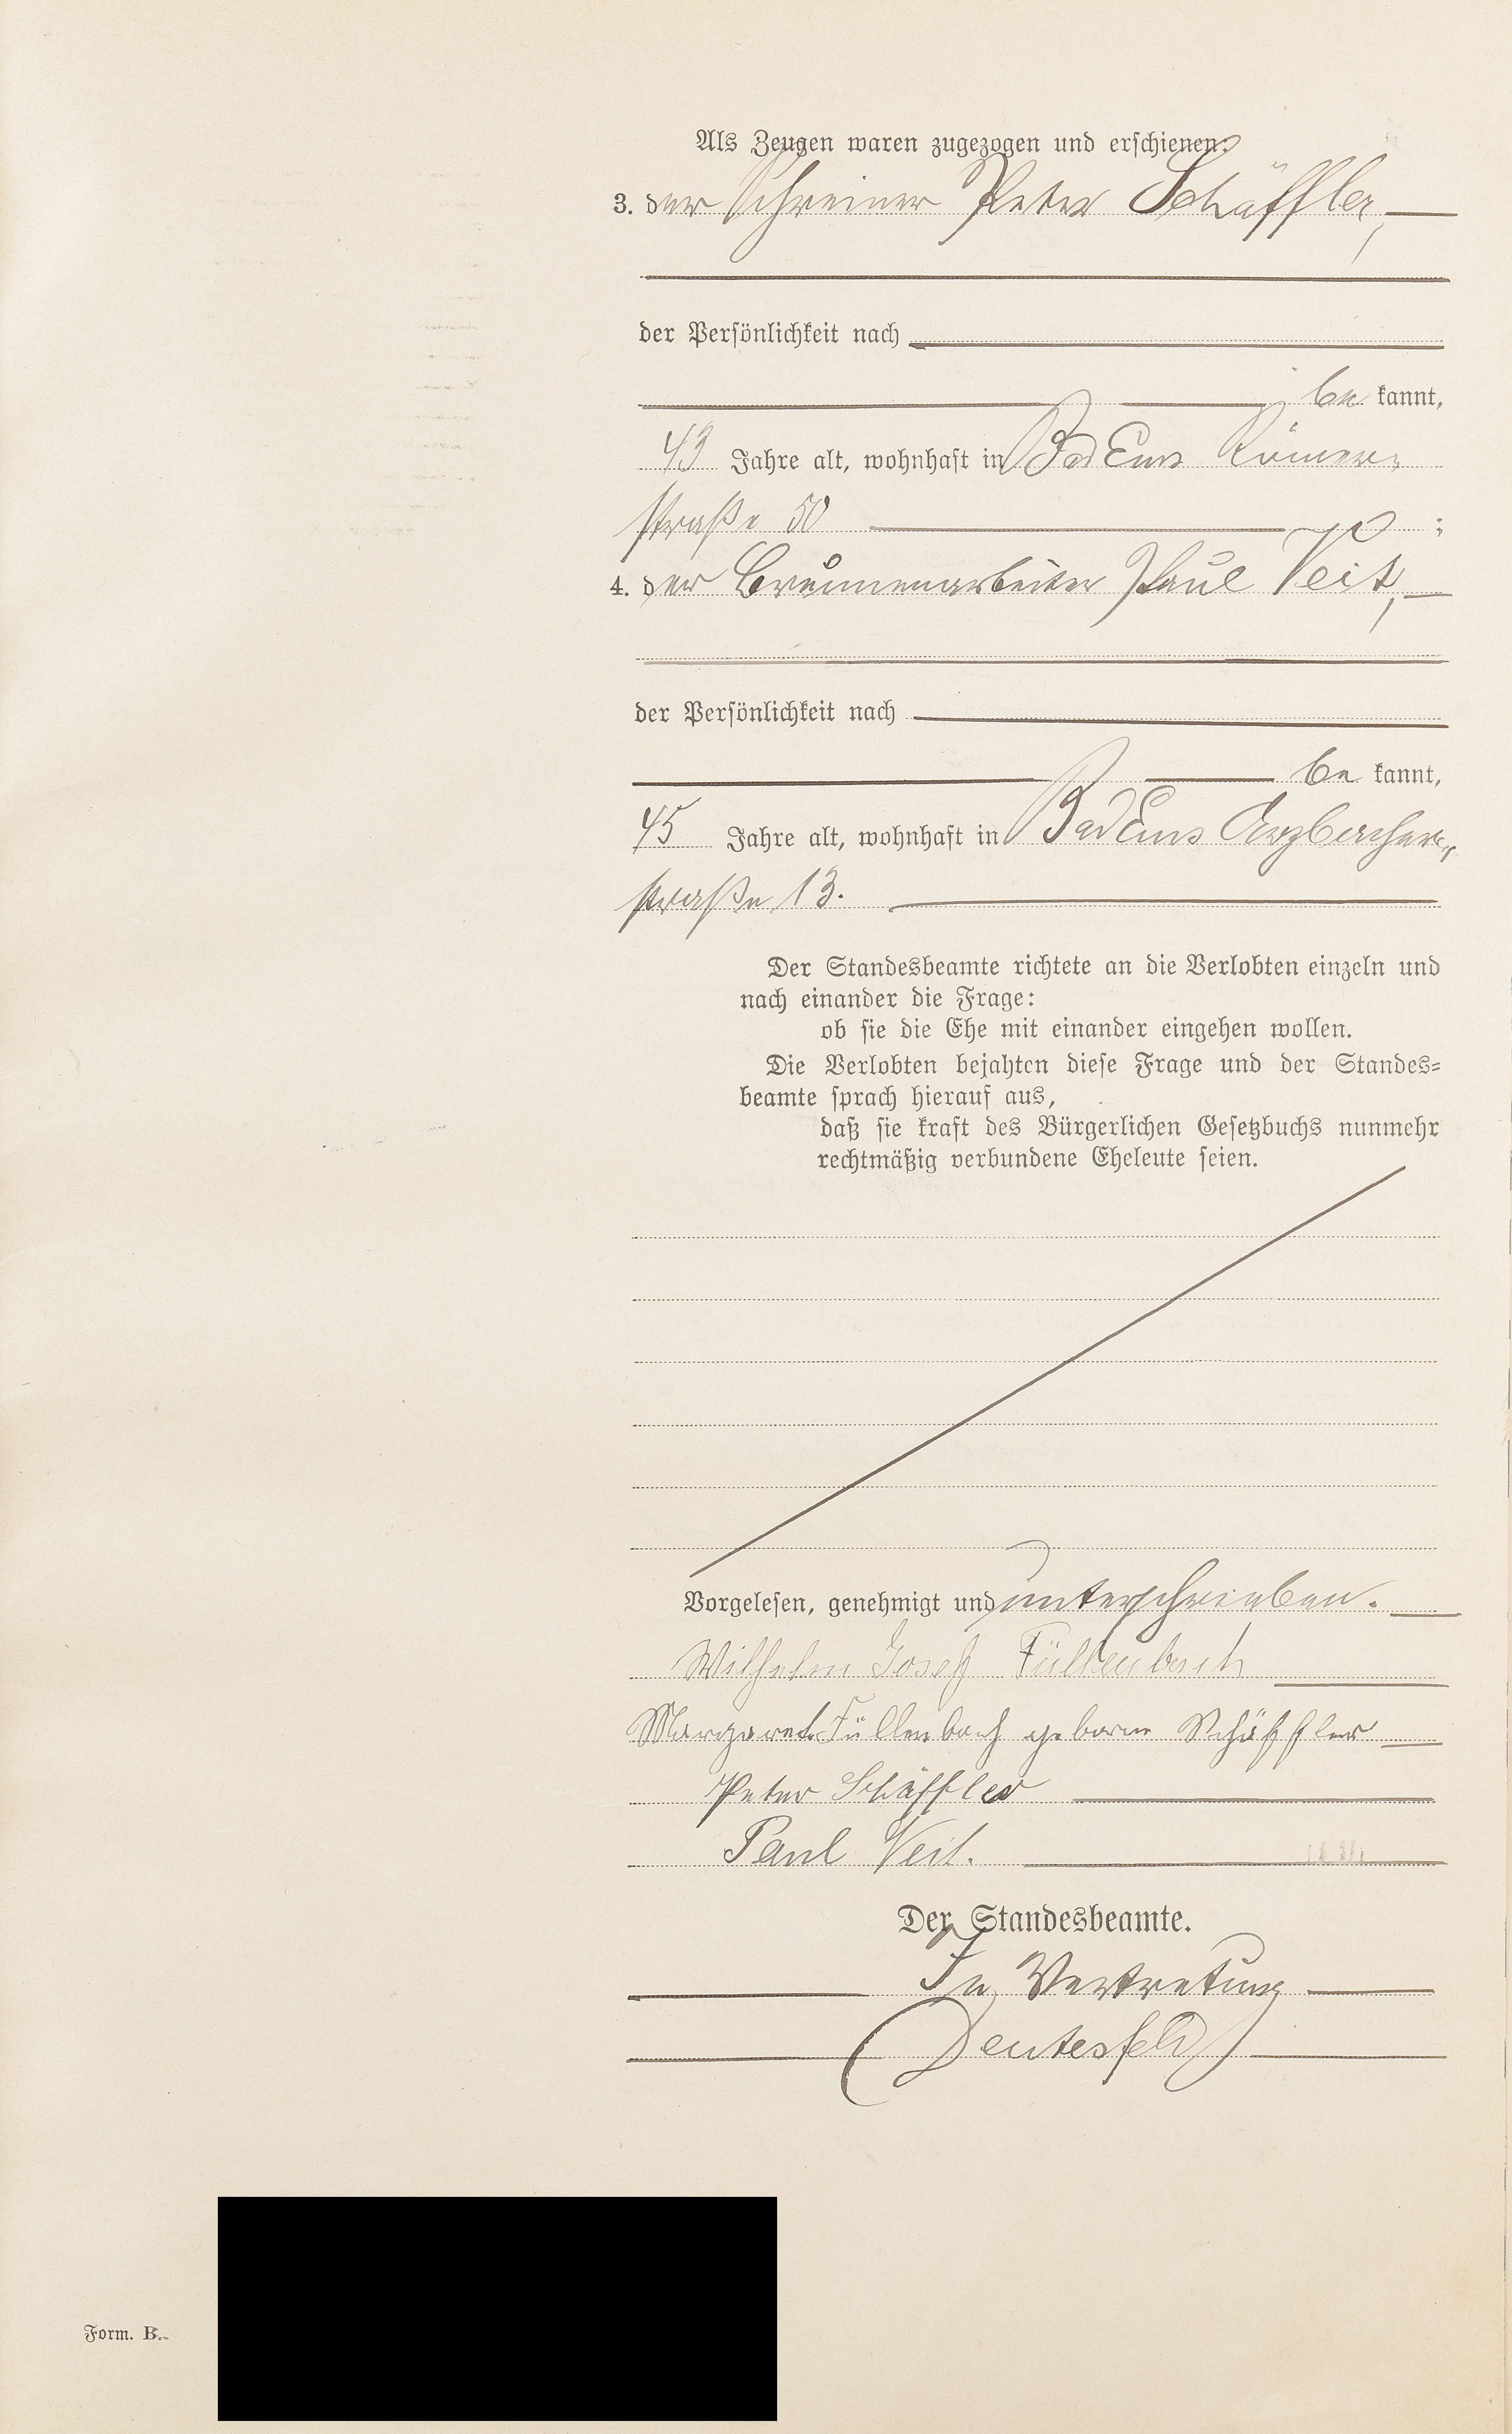 Als Zeugen waren zugezogen und erschienen:
3. der Schreiner Peter Schäffler,
der Persönlichkeit nach
be kannt,
43 Jahre alt, wohnhaft in Bad Ems Römer-
straße 50 ;
4. der Brunnenarbeiter Paul Veit,
der Persönlichkeit nach
be kannt,
45 Jahre alt, wohnhaft in Bad Ems Arzbacher-
straße 13.
Der Standesbeamte richtete an die Verlobten einzeln und
nach einander die Frage:
ob sie die Ehe mit einander eingehen wollen.
Die Verlobten bejahten diese Frage und der Standes-
beamte sprach hierauf aus,
daß sie kraft des Bürgerlichen Gesetzbuchs nunmehr
rechtmäßig verbundene Eheleute seien.
Vorgelesen, genehmigt und unterschrieben.
Wilhelm Josef Füllenbach
Margaret Füllenbach geborne Schäffler
Peter Schäffler
Paul Veit.
Der Standesbeamte.
In Vertretung
Deutesfeld
Form. B.